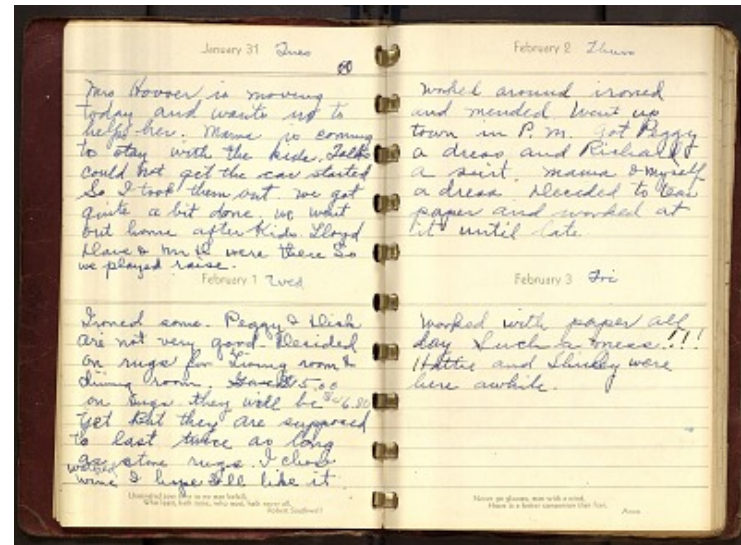 January 31 Tues
60
Mrs Hoover is moving
today and wants us to
help her. Mama is coming
to stay with the kids. Folks
could not get the car started
So I took them out. we got
quite a bit done. we went
but home after Kids. Lloyd
Dave & Mr H. were there So
we played raise.
February 1 Wed
Ironed some. Peggy & Dick
are not very good Decided
on rugs for Living room &
dining room. $15.00
on rugs they will be $46.80
yet But they are supposed
to last twice as long
as store rugs. I chose
wine I hope I'll like it
Robert Southwell
February 2 Thurs
Worked around ironed
and mended. Went up
town in P.M. got Peggy
a dress and Richard
a suit. mama & myself
a dress. Decided to tear
paper and worked at
it until late.
February 3 Fri
Worked with paper all
day Such a mess!!!
Hattie and Shirley were
here awhile.
Never go gloomy, man with a mind,
Hope is a better companion than fear,
Anon.